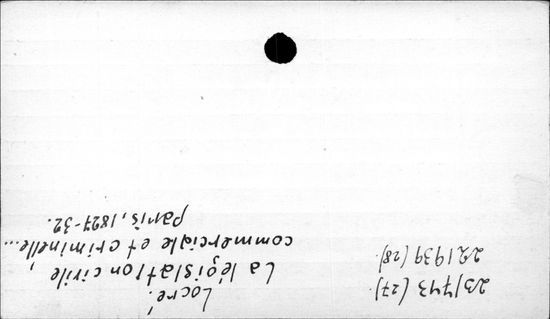 Locré.
La législation civile,
commerciale et criminelle...
Paris, 1827-32.
23/743 (27).
221939 (28).